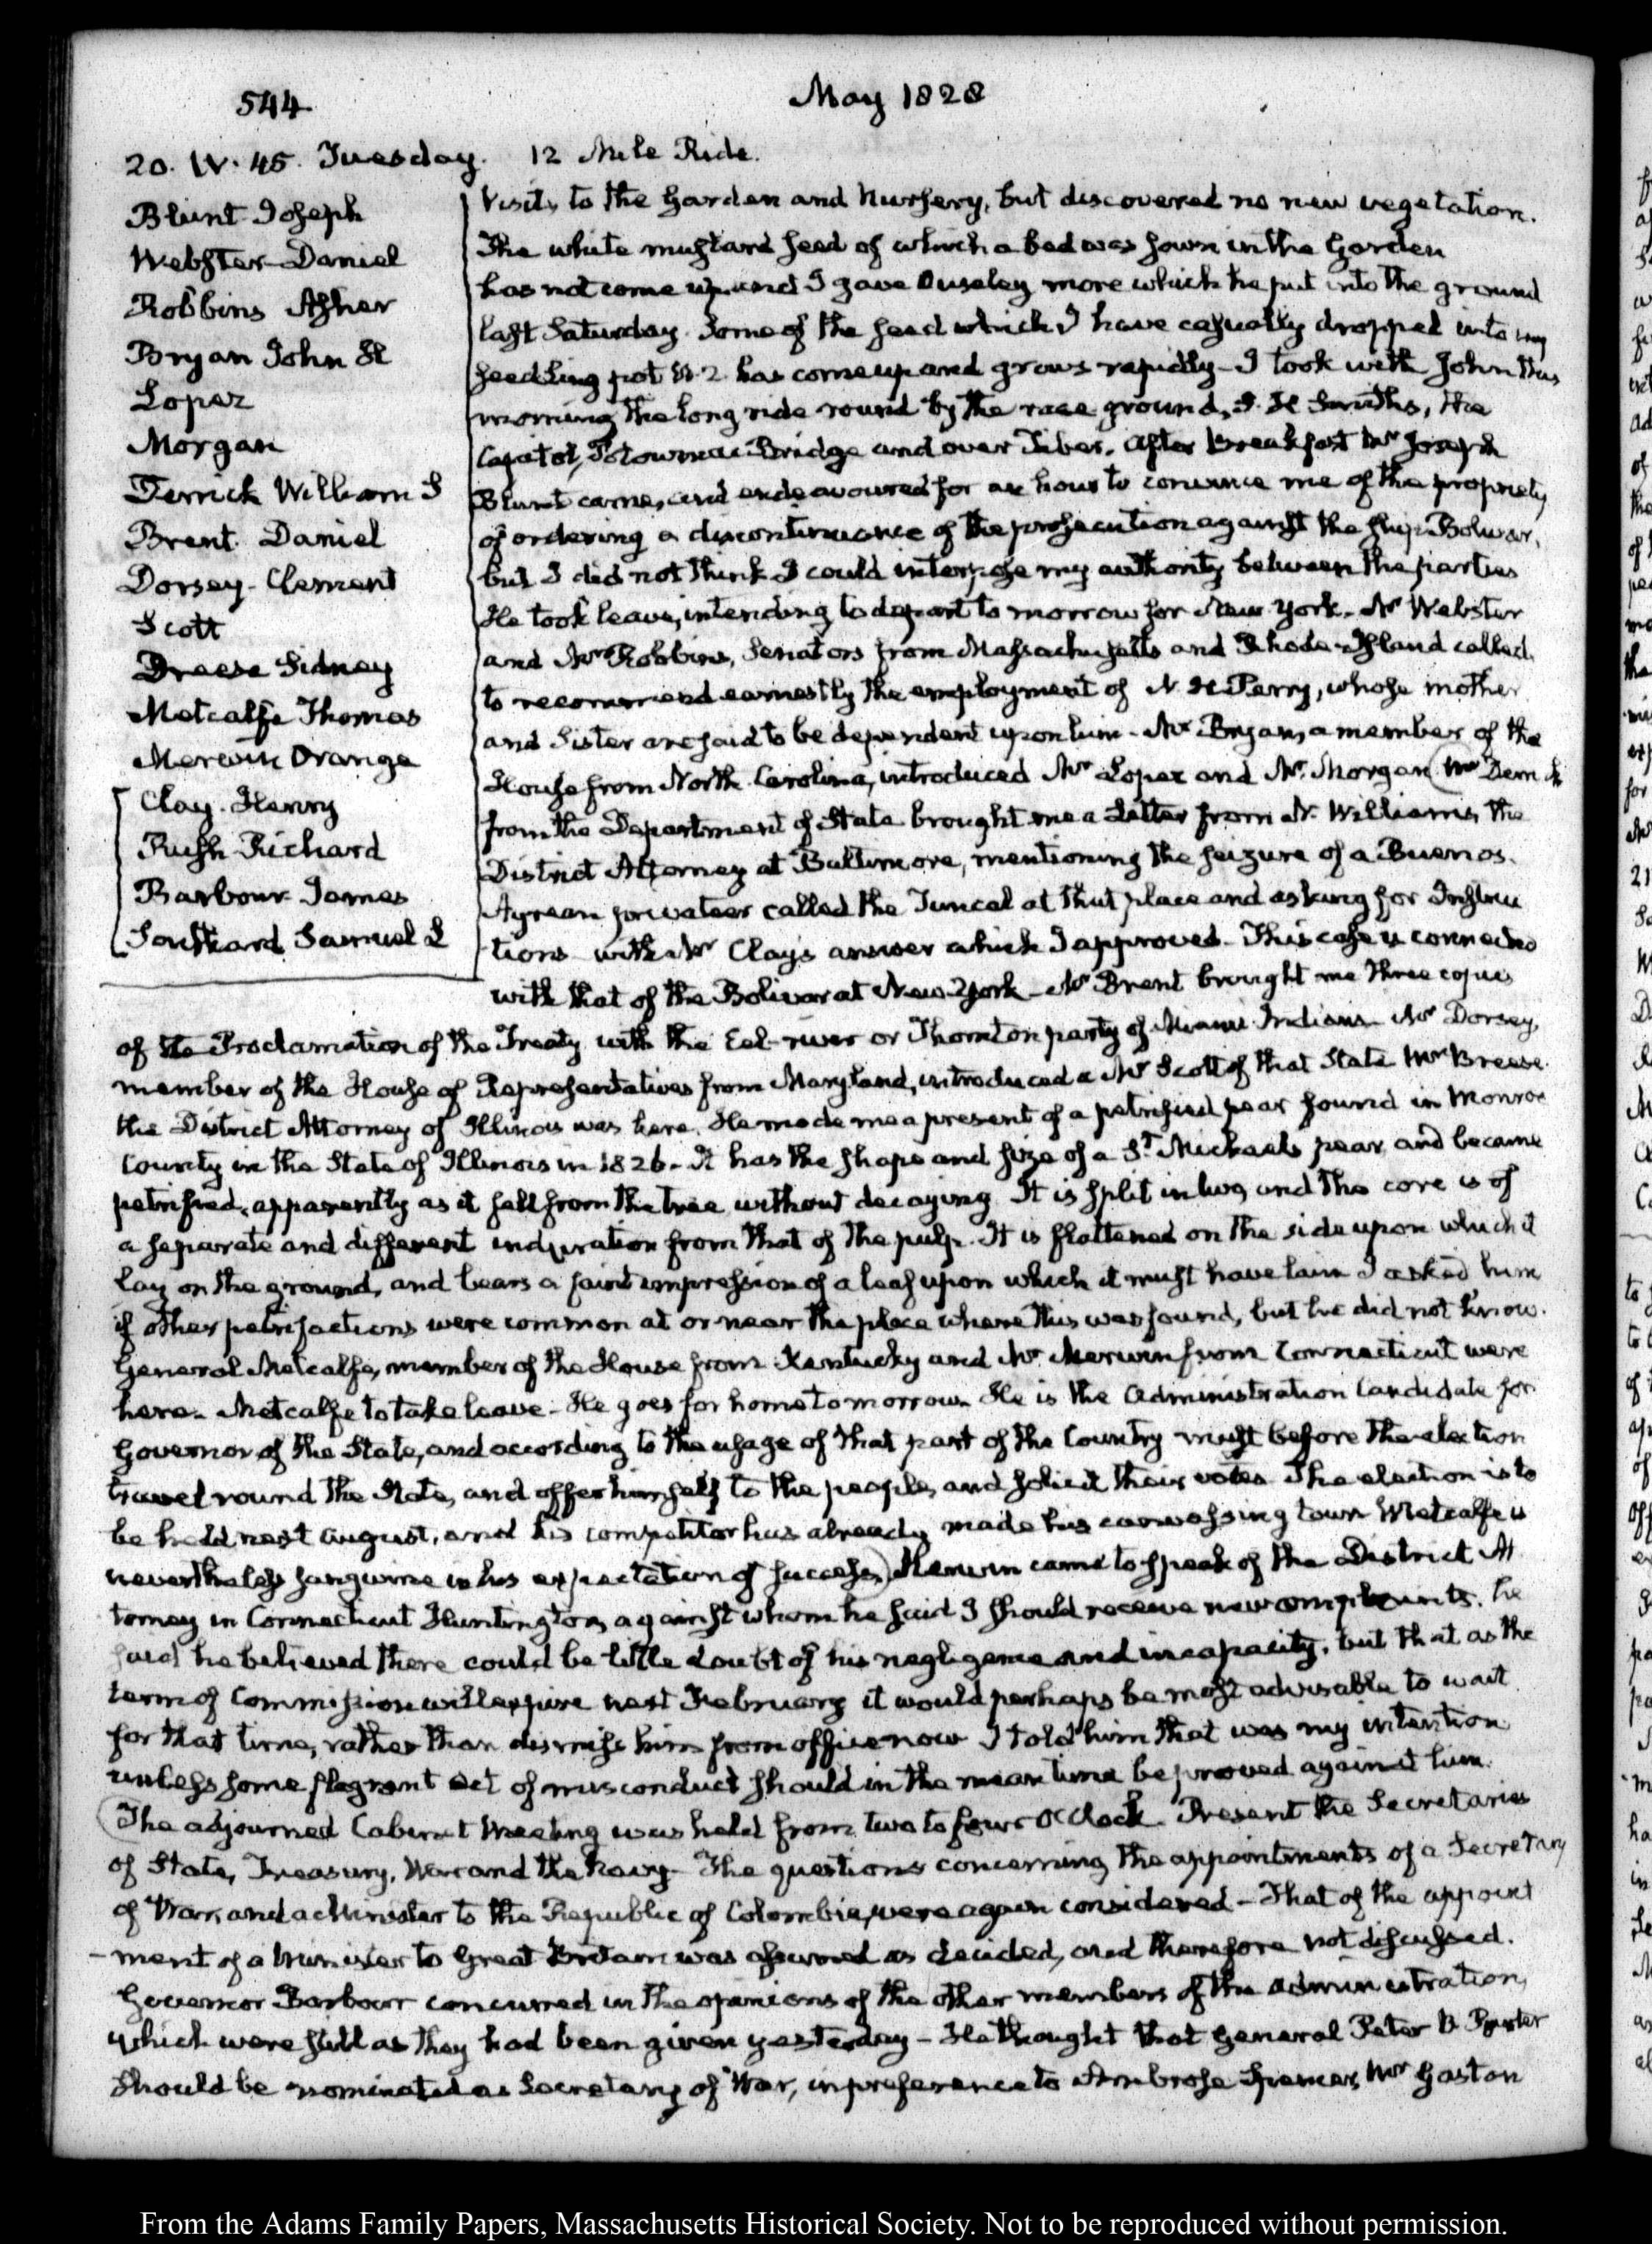 544
May 1828
20. IV. 45. Tuesday. 12 Mile Ride.
Blunt Joseph
Webster Daniel
Robbins Asher
Bryan John H
Lopez
Morgan
Derrick William S
Brent Daniel
Dorsey Clement
Scott
Breese Sidney
Metcalfe Thomas
Merwin Orange
Clay Henry
Rush Richard
Barbour James
Southard Samuel L
Visits to the Garden and Nursery, but discovered no new vegetation.
The white mustard seed of which a bed was sown in the Garden
has not come up and I gave Ouseley more which he put into the ground
last Saturday. Some of the seed which I have casually dropped into my
seedling pot N. 2 has come up and grows rapidly - I took with John this
morning the long ride round by the race ground, J. H Smith's, the
Capitol, Potowmac Bridge and over Tiber. After breakfast Mr Joseph
Blunt came, and endeavoured for an hour to convince me of the propriety
of ordering a discontinuance of the prosecution against the ship Bolivar,
but I did not think I could interpose my authority between the parties
He took leave, intending to depart to morrow for New York. Mr Webster
and Mr Robbins, Senators from Massachusetts and Rhode-Island called
to recommend earnestly the employment of N. H Perry, whose mother
and Sister are said to be dependent upon him - Mr Bryan, a member of the
House from North Carolina, introduced Mr Lopez and Mr. Morgan (Mr Derrick
from the Department of State brought me a Letter from N. Williams, the
District Attorney at Baltimore, mentioning the seizure of a Buenos.
Ayrean privateer called the Juncal at that place and asking for Instruc
tions - with Mr Clay's answer which I approved - This case is connected
with that of the Bolivar at New-York - Mr Brent brought me three copies
of the Proclamation of the Treaty with the Eel-river or Thornton party of Miami Indians. Mr Dorsey,
member of the House of Representatives from Maryland, introduced a Mr Scott of that State Mr Breese
the District Attorney of Illinois was here. He made me a present of a petrified pear found in Monroe
County in the State of Illinois in 1826 - It has the shape and size of a St Michaels pear, and became
petrified, apparently as it fell from the tree without decaying. It is split in two, and the core is of
a separate and different induration from that of the pulp. It is flattened on the side upon which it
lay on the ground, and bears a faint impression of a leaf upon which it must have lain I asked him
if other petrifactions were common at or near the place where this was found, but he did not know.
General Metcalfe, member of the House from Kentucky and Mr. Merwin from Connecticut were
here - Metcalfe to take leave - He goes for home to morrow. He is the Administration Candidate for
Governor of the State, and according to the usage of that part of the Country must before the election
travel round the State, and offer himself to the people, and solicit their votes The election is to
be held next August, and his competitor has already made his canvassing tour Metcalfe is
nevertheless sanguine in his expectation of success.) Merwin came to speak of the District At
torney in Connecticut Huntington, against whom he said I should receive new complaints. he
said he believed there could be little doubt of his negligence and incapacity, but that as the
term of Commission will expire next February it would perhaps be most advisable to wait
for that time, rather than dismiss him from office now I told him that was my intention
unless some flagrant act of misconduct should in the mean time be proved against him.
(The adjourned Cabinet Meeting was held from two to four O'Clock. Present the Secretaries
of State, Treasury, War and the Navy - The questions concerning the appointments of a Secretary
of War, and a Minister to the Republic of Colombia, were again considered - That of the appoint
-ment of a Minister to Great Britain was assumed as decided, and therefore not discussed.
Governor Barbour concurred in the opinions of the other members of the administration,
which were still as they had been given yesterday - He thought that General Peter B Porter
should be nominated as Secretary of War, in preference to Ambrose Spencer, Mr Gaston
From the Adams Family Papers, Massachusetts Historical Society. Not to be reproduced without permission.